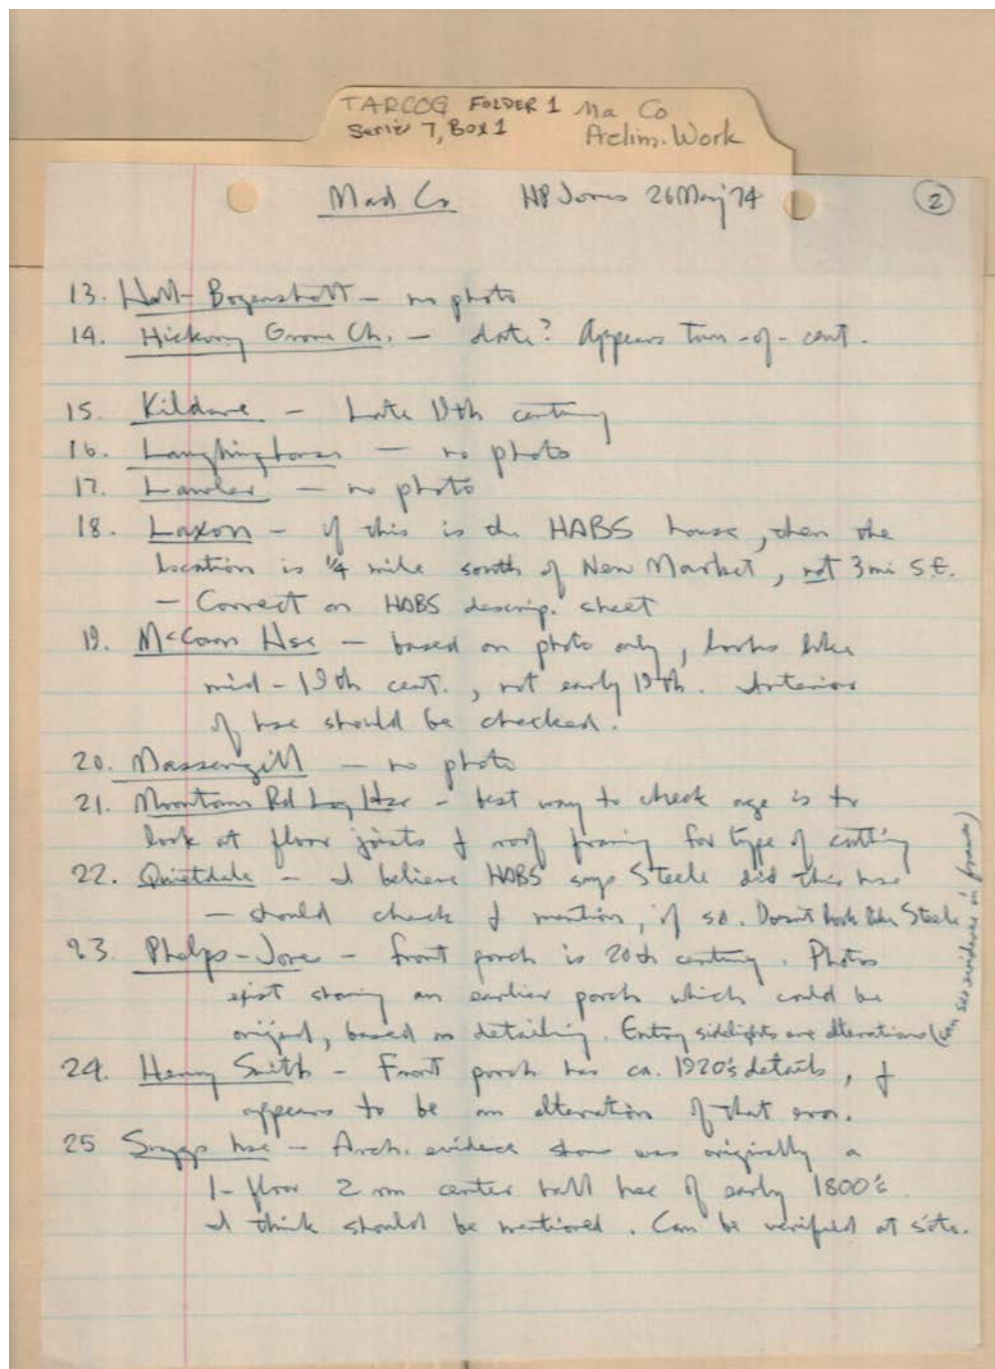 TARCOG FOLDER 1 Ma Co
Series 7, Box 1 Prelim. Work
Mad Co HP Jones 26 May '74 2
13. Holt- Bogenshott - no photo
14. Hickory Grove Ch. - date? Appears turn-of-cent.
15. Kildare - Late 19th century
16. - no photo
17. Lawler - no photo
18. Laxon - if this is the HABS house, then the
location is 1/4 mile south of New Market, not 3 mi S.E.
- Correct on HABS descrip. sheet
19. McCann Hse - based on photo only, looks like
mid-19th cent., not early 19th. Interior
of hse should be checked.
20. Massengill - no photo
21. Mountain Rd Log Hse - best way to check age is to
look at floor joists & roof framing for type of cutting
22. Quietdale - I believe HABS says Steele did this hse
- should check & mention, if so. Doesn't look like Steele
23. Phelps-Jones - front porch is 20th century. Photos
exist showing an earlier porch which could be
original, based on detailing. Entry sidelights are alterations (can see evidence in frame)
24. Henry Smith - Front porch has ca. 1920's details, &
appears to be an alteration of that era.
25 Suggs hse - Arch. evidence shows was originally a
1-floor 2 rm center hall hse of early 1800's.
I think should be mentioned. Can be verified at site.